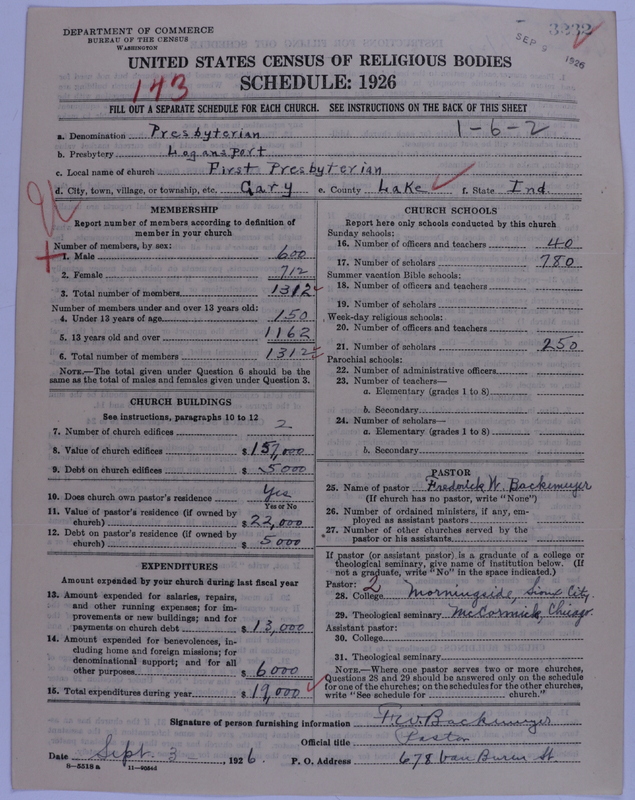 DEPARTMENT OF COMMERCE
BUREAU OF THE CENSUS
WASHINGTON
3232
SEP 9 1926
UNITED STATES CENSUS OF RELIGIOUS BODIES
SCHEDULE: 1926
143
FILL OUT A SEPARATE SCHEDULE FOR EACH CHURCH. SEE INSTRUCTIONS ON THE BACK OF THIS SHEET
a. Denomination Presbyterian 1-6-2
b. Presbytery Logansport
c. Local name of church First Presbyterian
d. City, town, village, or township, etc. Gary e. County Lake f. State Ind.
MEMBERSHIP
Report number of members according to definition of
member in your church
Number of members, by sex:
1. Male 600
2. Female 712
3. Total number of members 1312
Number of members under and over 13 years old:
4. Under 13 years of age 150
5. 13 years old and over 1162
6. Total number of members 1312
NOTE.—The total given under Question 6 should be the
same as the total of males and females given under Question 3.
CHURCH BUILDINGS
See instructions, paragraphs 10 to 12
7. Number of church edifices 2
8. Value of church edifices $ 157,000
9. Debt on church edifices $ 5000
10. Does church own pastor's residence Yes
Yes or No
11. Value of pastor's residence (if owned by
church) $ 22,000
12. Debt on pastor's residence (if owned by
church) $ 5000
EXPENDITURES
Amount expended by your church during last fiscal year
13. Amount expended for salaries, repairs,
and other running expenses; for im-
provements or new buildings; and for
payments on church debt $ 13,000
14. Amount expended for benevolences, in-
cluding home and foreign missions; for
denominational support; and for all
other purposes $ 6000
15. Total expenditures during year $ 19,000
CHURCH SCHOOLS
Report here only schools conducted by this church
Sunday schools:
16. Number of officers and teachers 40
17. Number of scholars 780
Summer vacation Bible schools:
18. Number of officers and teachers
19. Number of scholars
Week-day religious schools:
20. Number of officers and teachers
21. Number of scholars 250
Parochial schools:
22. Number of administrative officers
23. Number of teachers—
a. Elementary (grades 1 to 8)
b. Secondary
24. Number of scholars—
a. Elementary (grades 1 to 8)
b. Secondary
PASTOR
25. Name of pastor Frederick W. Backemeyer
(If church has no pastor, write "None")
26. Number of ordained ministers, if any, em-
ployed as assistant pastors
27. Number of other churches served by the
pastor or his assistants
If pastor (or assistant pastor) is a graduate of a college or
theological seminary, give name of institution below. (If
not a graduate, write "No" in the space indicated.)
Pastor: 2
28. College Morningside, Sioux City
29. Theological seminary McCormick, Chicago.
Assistant pastor:
30. College
31. Theological seminary
NOTE.—Where one pastor serves two or more churches,
Questions 28 and 29 should be answered only on the schedule
for one of the churches; on the schedules for the other churches,
write "See schedule for church."
Signature of person furnishing information F.W. Backemeyer
Official title Pastor
Date Sept. 3, 1926. P. O. Address 678 Van Buren St
8-5518 a 11-9564d